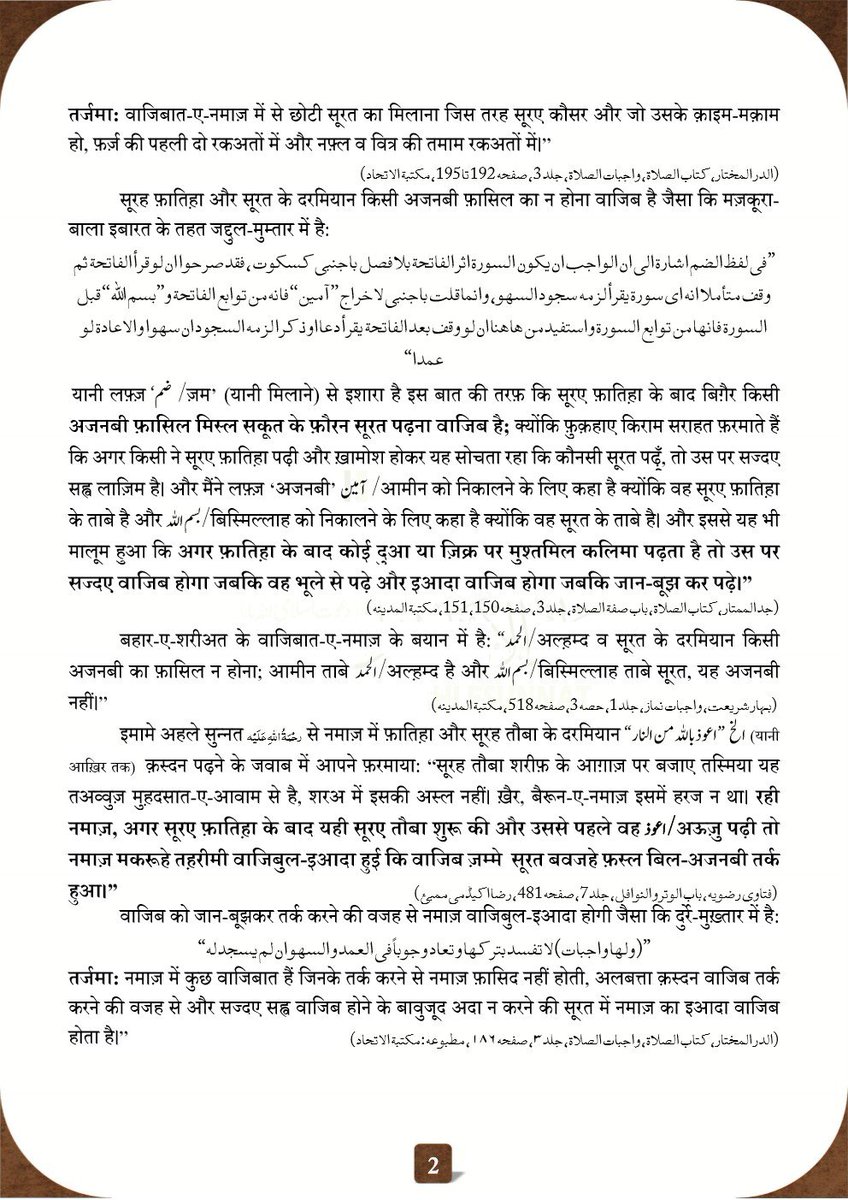 तर्जमा: वाजिबात-ए-नमाज़ में से छोटी सूरत का मिलाना जिस तरह सूरए कौसर और जो उसके क़ाइम-मक़ाम
हो, फ़र्ज़ की पहली दो रकअतों में और नफ़्ल व वित्र की तमाम रकअतों में।”
(الدر المختار، کتاب الصلاۃ، واجبات الصلاۃ، جلد3، صفحہ192تا195، مکتبۃ الاتحاد)
सूरह फ़ातिह़ा और सूरत के दरमियान किसी अजनबी फ़ासिल का न होना वाजिब है जैसा कि मज़कूरा-
बाला इबारत के तहत जद्दुल-मुम्तार में है:
”فی لفظ الضم اشارۃ الی ان الواجب ان یکون السورۃ اثر الفاتحۃ بلافصل باجنبی کسکوت، فقد صرحوا ان لو قرأ الفاتحۃ ثم
وقف متأملا انہ ای سورۃ یقرأ لزمہ سجود السھو، وانما قلت باجنبی لاخراج ”آمین“ فانہ من توابع الفاتحۃ و”بسم اللہ“ قبل
السورۃ فانھا من توابع السورۃ واستفید من ھاھنا ان لو وقف بعد الفاتحۃ یقرأ دعا او ذکرا لزمہ السجود ان سھوا والاعادۃ لو
عمدا“
यानी लफ़्ज़ ‘ضم / ज़म’ (यानी मिलाने) से इशारा है इस बात की तरफ़ कि सूरए फ़ातिह़ा के बाद बिग़ैर किसी
अजनबी फ़ासिल मिस्ल सकूत के फ़ौरन सूरत पढ़ना वाजिब है; क्योंकि फ़ुक़हाए किराम सराहत फ़रमाते हैं
कि अगर किसी ने सूरए फ़ातिह़ा पढ़ी और ख़ामोश होकर यह सोचता रहा कि कौनसी सूरत पढ़ूँ, तो उस पर सज्दए
सह्व लाज़िम है। और मैंने लफ़्ज़ ‘अजनबी’ آمین /आमीन को निकालने के लिए कहा है क्योंकि वह सूरए फ़ातिह़ा
के ताबे है और بسم اللہ/बिस्मिल्लाह को निकालने के लिए कहा है क्योंकि वह सूरत के ताबे है। और इससे यह भी
मालूम हुआ कि अगर फ़ातिह़ा के बाद कोई दुआ या ज़िक्र पर मुश्तमिल कलिमा पढ़ता है तो उस पर
सज्दए वाजिब होगा जबकि वह भूले से पढ़े और इआदा वाजिब होगा जबकि जान-बूझ कर पढ़े।”
(جد الممتار، کتاب الصلاۃ، باب صفۃ الصلاۃ، جلد3، صفحہ150، 151، مکتبۃ المدینہ)
बहार-ए-शरीअत के वाजिबात-ए-नमाज़ के बयान में है: “الحمد/अल्ह़म्द व सूरत के दरमियान किसी
अजनबी का फ़ासिल न होना; आमीन ताबे الحمد/अल्ह़म्द है और بسم اللہ/बिस्मिल्लाह ताबे सूरत, यह अजनबी
नहीं।” (بہار شریعت، واجبات نماز، جلد1، حصہ3، صفحہ518، مکتبۃ المدینہ)
इमामे अहले सुन्नत رحمۃ اللہ علیہ से नमाज़ में फ़ातिह़ा और सूरह तौबा के दरमियान “اعوذ باللہ من النار” الخ (यानी
आख़िर तक) क़स्दन पढ़ने के जवाब में आपने फ़रमाया: “सूरह तौबा शरीफ़ के आग़ाज़ पर बजाए तस्मिया यह
तअव्वुज़ मुह़दसात-ए-आवाम से है, शरअ में इसकी अस्ल नहीं। ख़ैर, बैरून-ए-नमाज़ इसमें हरज न था। रही
नमाज़, अगर सूरए फ़ातिह़ा के बाद यही सूरए तौबा शुरू की और उससे पहले वह اعوذ/अऊज़ु पढ़ी तो
नमाज़ मकरूहे तह़रीमी वाजिबुल-इआदा हुई कि वाजिब ज़म्मे सूरत बवजहे फ़स्ल बिल-अजनबी तर्क
हुआ।” (فتاوی رضویہ، باب الوتر والنوافل، جلد7، صفحہ481، رضا اکیڈمی ممبئ)
वाजिब को जान-बूझकर तर्क करने की वजह से नमाज़ वाजिबुल-इआदा होगी जैसा कि दुर्रे-मुख़्तार में है:
”(ولھا واجبات) لا تفسد بترکھا وتعاد وجوباً فی العمد والسھو ان لم یسجد لہ“
तर्जमा: नमाज़ में कुछ वाजिबात हैं जिनके तर्क करने से नमाज़ फ़ासिद नहीं होती, अलबत्ता क़स्दन वाजिब तर्क
करने की वजह से और सज्दए सह्व वाजिब होने के बावुजूद अदा न करने की सूरत में नमाज़ का इआदा वाजिब
होता है।” (الدر المختار، کتاب الصلاۃ، واجبات الصلاۃ، جلد۳، صفحہ ۱۸۶، مطبوعہ: مکتبۃ الاتحاد)
2